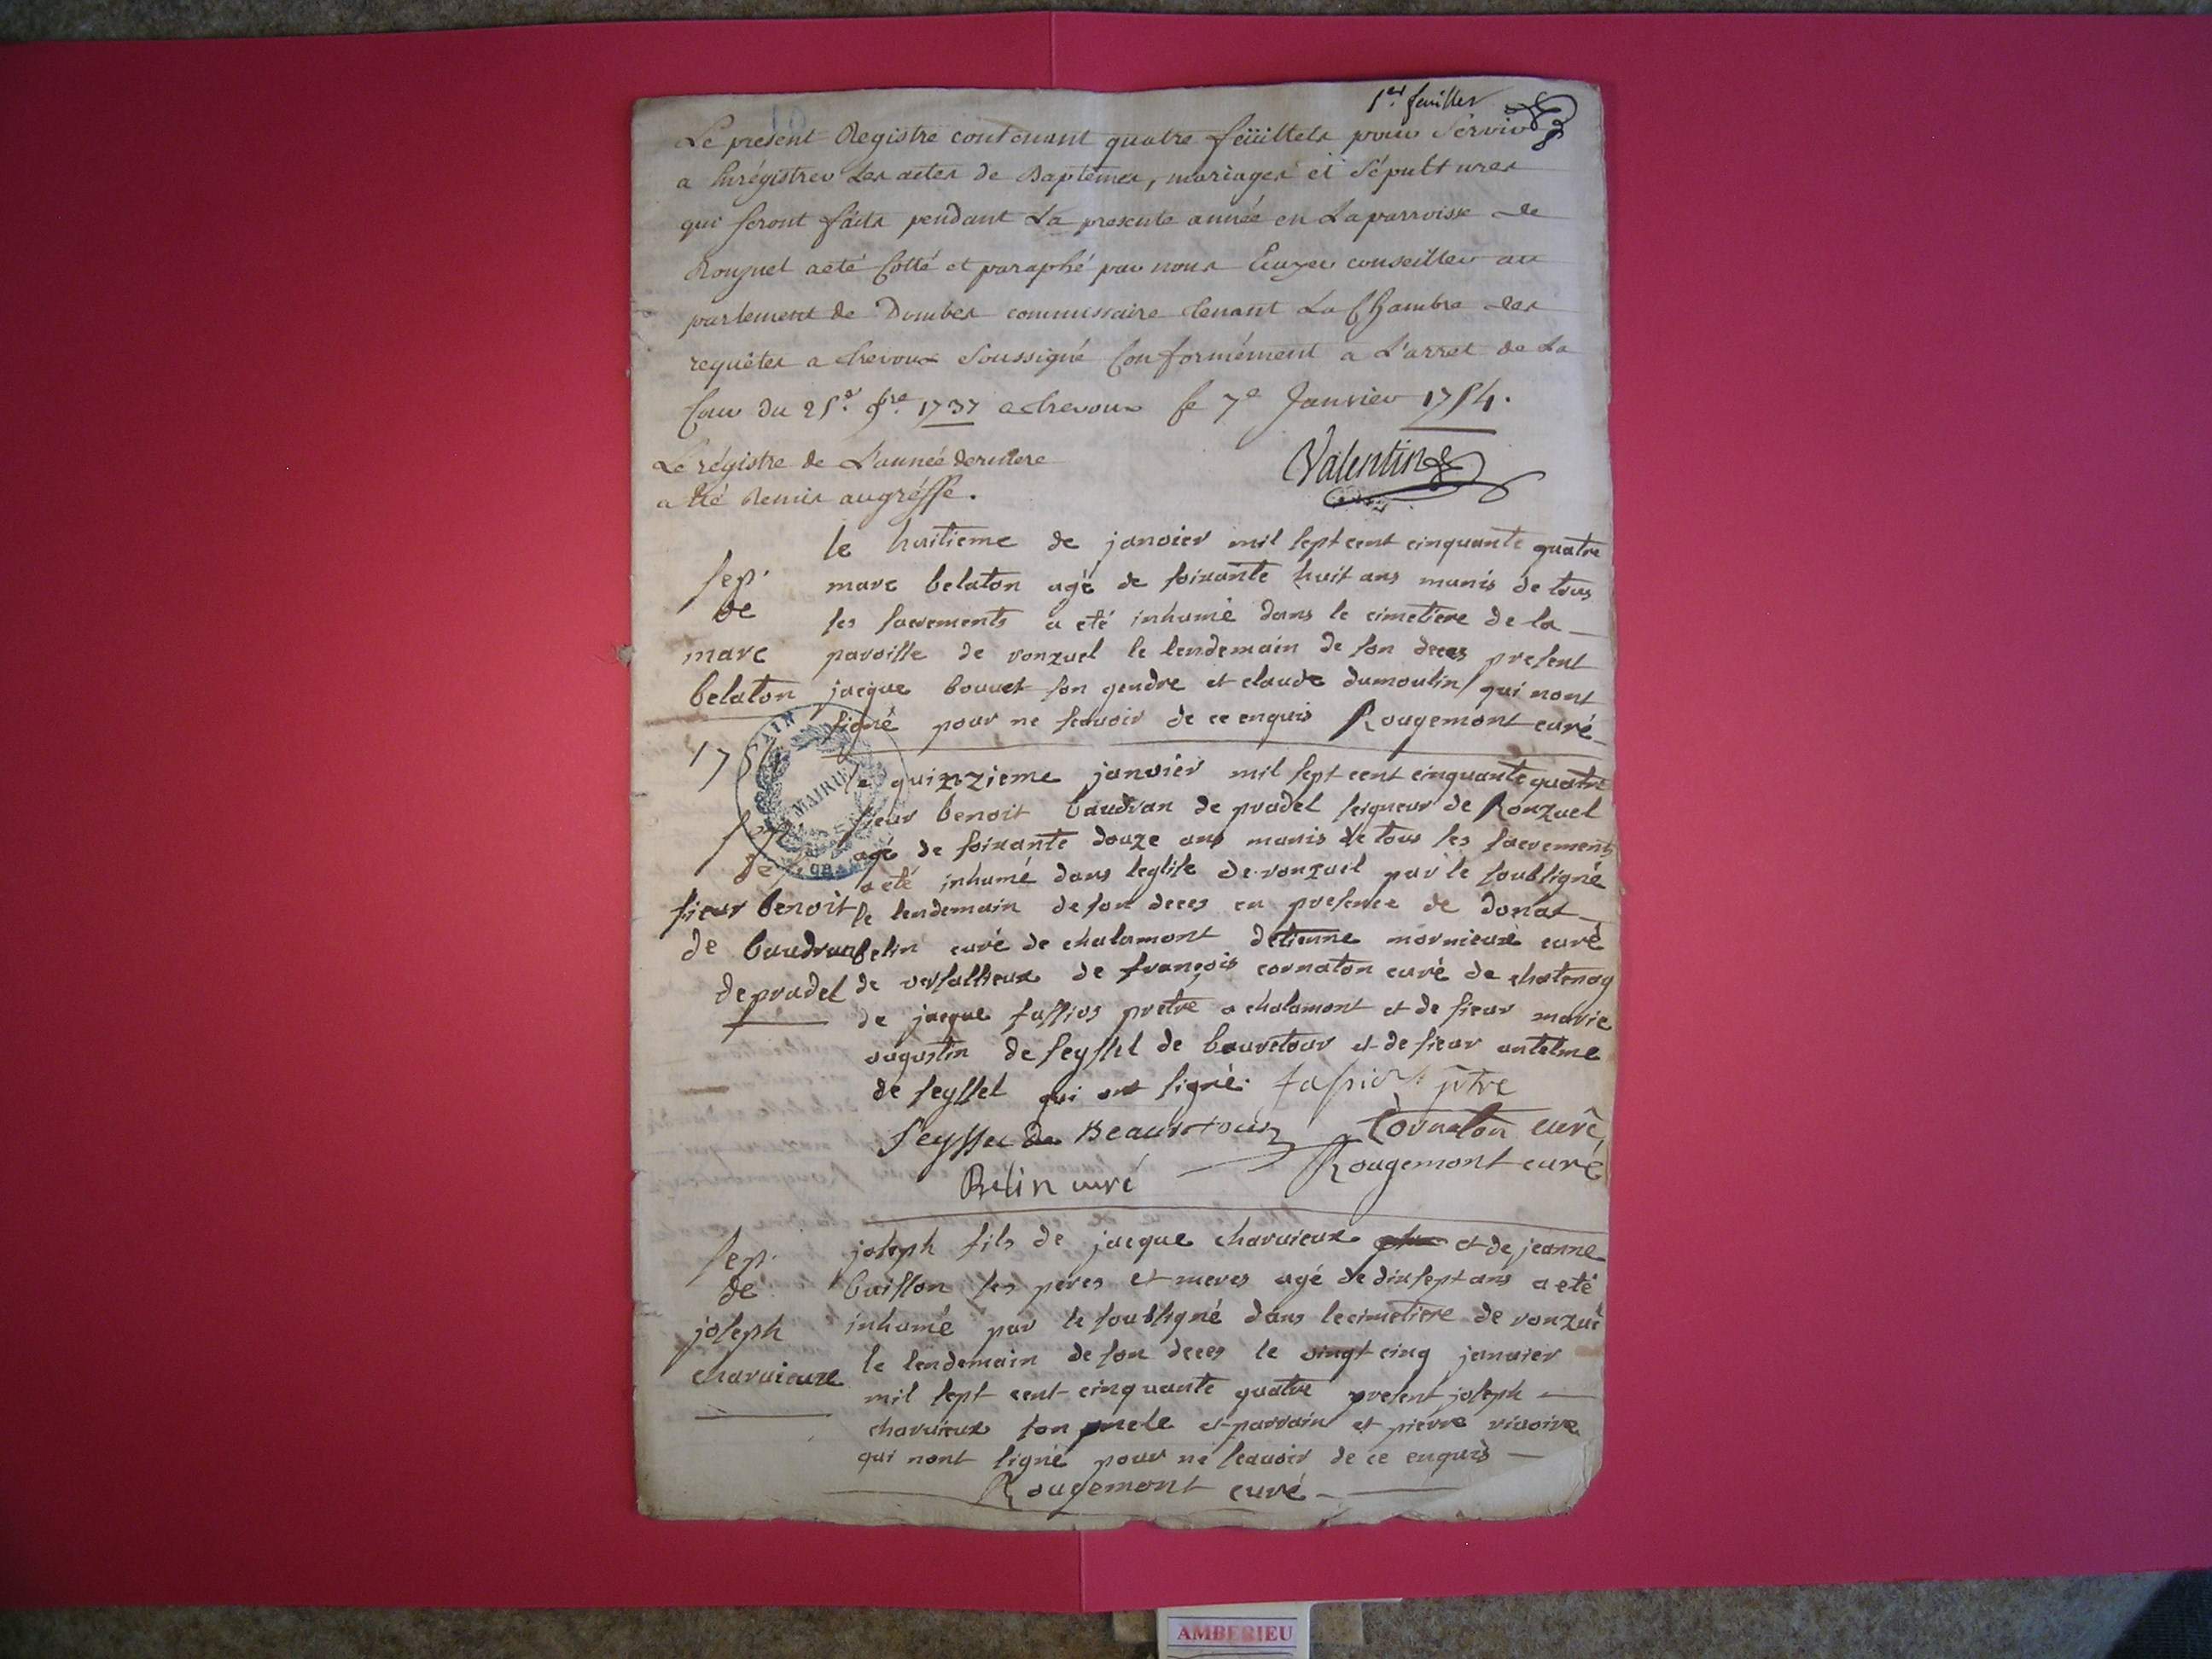 1er feuillet
Le present Registre contenant quatre feüillets pour servir
a Enrégistrer les actes de Baptêmes, mariages et Sépultures
qui seront faits pendant La presente année en La parroisse de
Ronzuel a eté Cotté et paraphé par nous Ecuyer conseiller au
parlement de Dombes commissaire tenant La Chambre des
requêtes a trevoux Soussigné Conformément a L'arret de La
Cour du 25e 9bre 1737 a trevoux ce 7e Janvier 1754.
Le régistre de L'année derniere
a été Remis au gréffe.
Valentin
le huitieme de janvier mil sept cent cinquante quatre
marc belaton agé de soixante huit ans munis de tous
les sacrements a eté inhumé dans le cimetiere de la
paroisse de ronzuel le lendemain de son deces present
jacque bouvet son gendre et claude dumoulin qui nont
signé pour ne scavoir de ce enquis Rougemont curé
sep.
de
marc
belaton
1754
AIN
MAIRIE
le quinzieme janvier mil sept cent cinquante quatre
sieur benoit baudran de pradel seigneur de Ronzuel
agé de soixante douze ans munis de tous les sacrements
a eté inhumé dans leglise de ronzuel par le soubsigné
le lendemain de son deces en presence de donat
belin curé de chalamont detienne mornieux curé
de versallieux de françois cornaton curé de chatenay
de jacque fassios pretre a chalamont et de sieur marie
augustin de seyssel de beauretour et de sieur antelme
de seyssel qui ont signé. fassior ptre
sep.
de
sieur benoit
de baudran
de pradel
Seyssel de Beauretour Cornaton curé
Rougemont curé
Belin curé
joseph fils de jacque charvieux et de jeanne
buisson ses peres et meres agé de dixsept ans a eté
inhumé par le soubsigné dans le cimetiere de ronzuel
le lendemain de son deces le vingt cinq janvier
mil sept cent cinquante quatre present joseph
charvieux son oncle et parrain et pierre rivoire
qui nont signé pour ne scavoir de ce enquis
Rougemont curé
sep.
de
joseph
charvieux
AMBERIEU